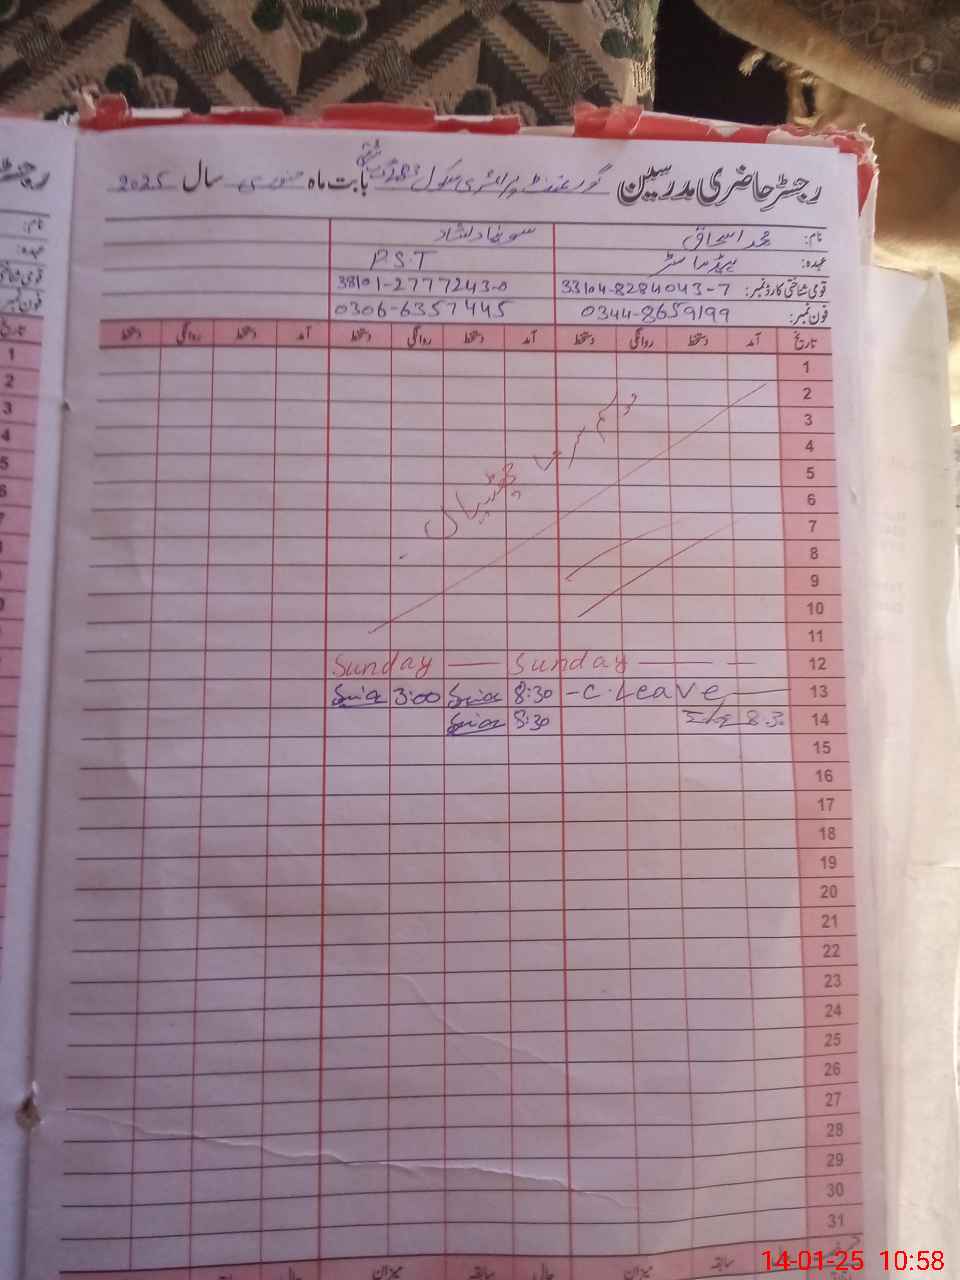 رجسٹر حاضری مدرسین گورنمنٹ پرائمری سکول بابت ماہ جنوری سال 2025
نام: محمد اسحاق
عہدہ: ہیڈ ماسٹر P.S.T
قومی شناختی کارڈ نمبر: 33104-8284043-7 38101-2777243-0
فون نمبر: 0344-8659199 0306-6357445
تاریخ آمد دستخط روانگی دستخط آمد دستخط روانگی دستخط آمد دستخط روانگی دستخط
1
2
3
4
5
6
7
8
9
10
11
موسم سرما چھٹیاں
Sunday — Sunday — 12
3:00 8:30 - C. Leave 13
8:30 8.30 14
15
16
17
18
19
20
21
22
23
24
25
26
27
28
29
30
31
سابقہ حالی میزان سابقہ حالی میزان
رجسٹر
نام:
عہدہ:
قومی شناختی
فون نمبر
تاریخ
1
2
3
4
5
6
7
8
9
14-01-25 10:58